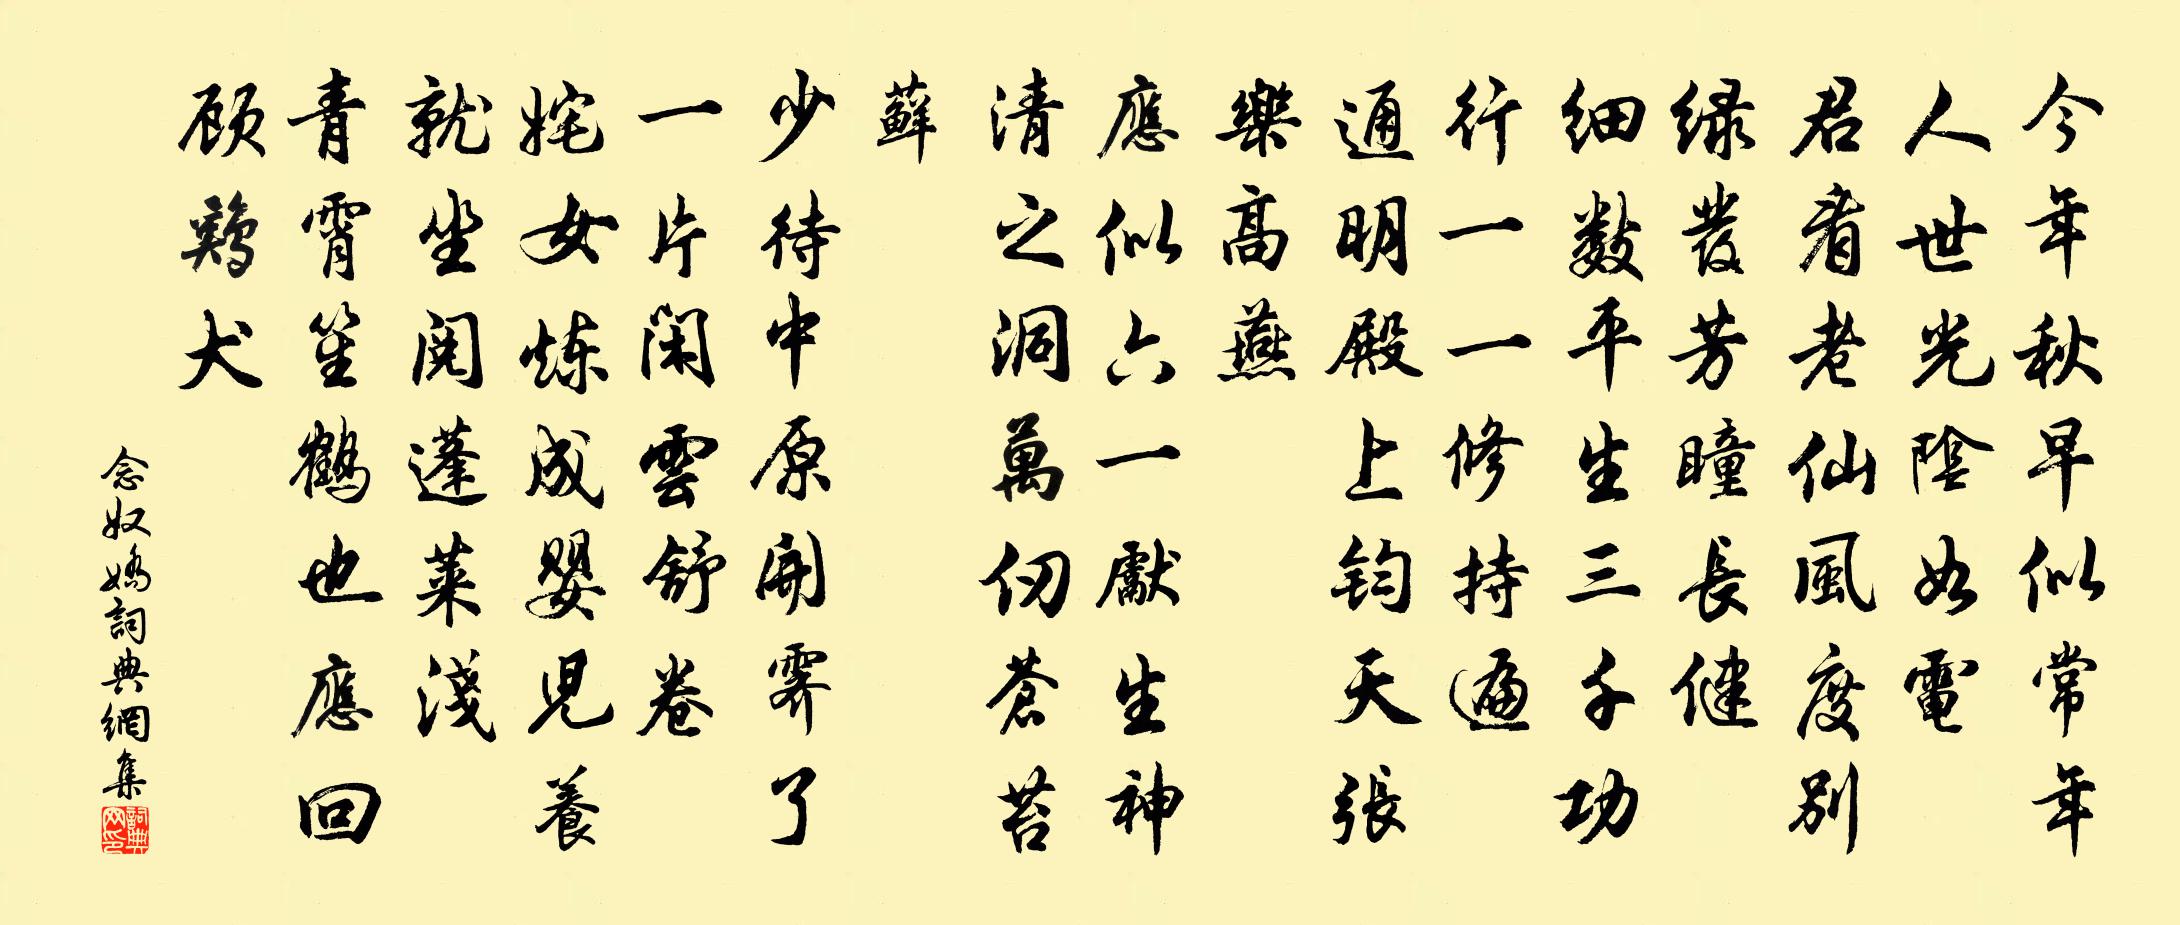 今年秋早似常年
人世光陰如電
君看老仙風度别
緑發芳瞳長健
细数平生三千功
行一一修持遍
通明殿上钧天張
樂高燕
應似六一獻生神
清之洞萬仞蒼苔
蘚
少待中原開霽了
一片閑雲舒卷
姹女炼成嬰児養
就坐閱蓬莱淺
青霄笙鶴也應回
顾鷄犬
念奴嬌詞典網集
詞典网印